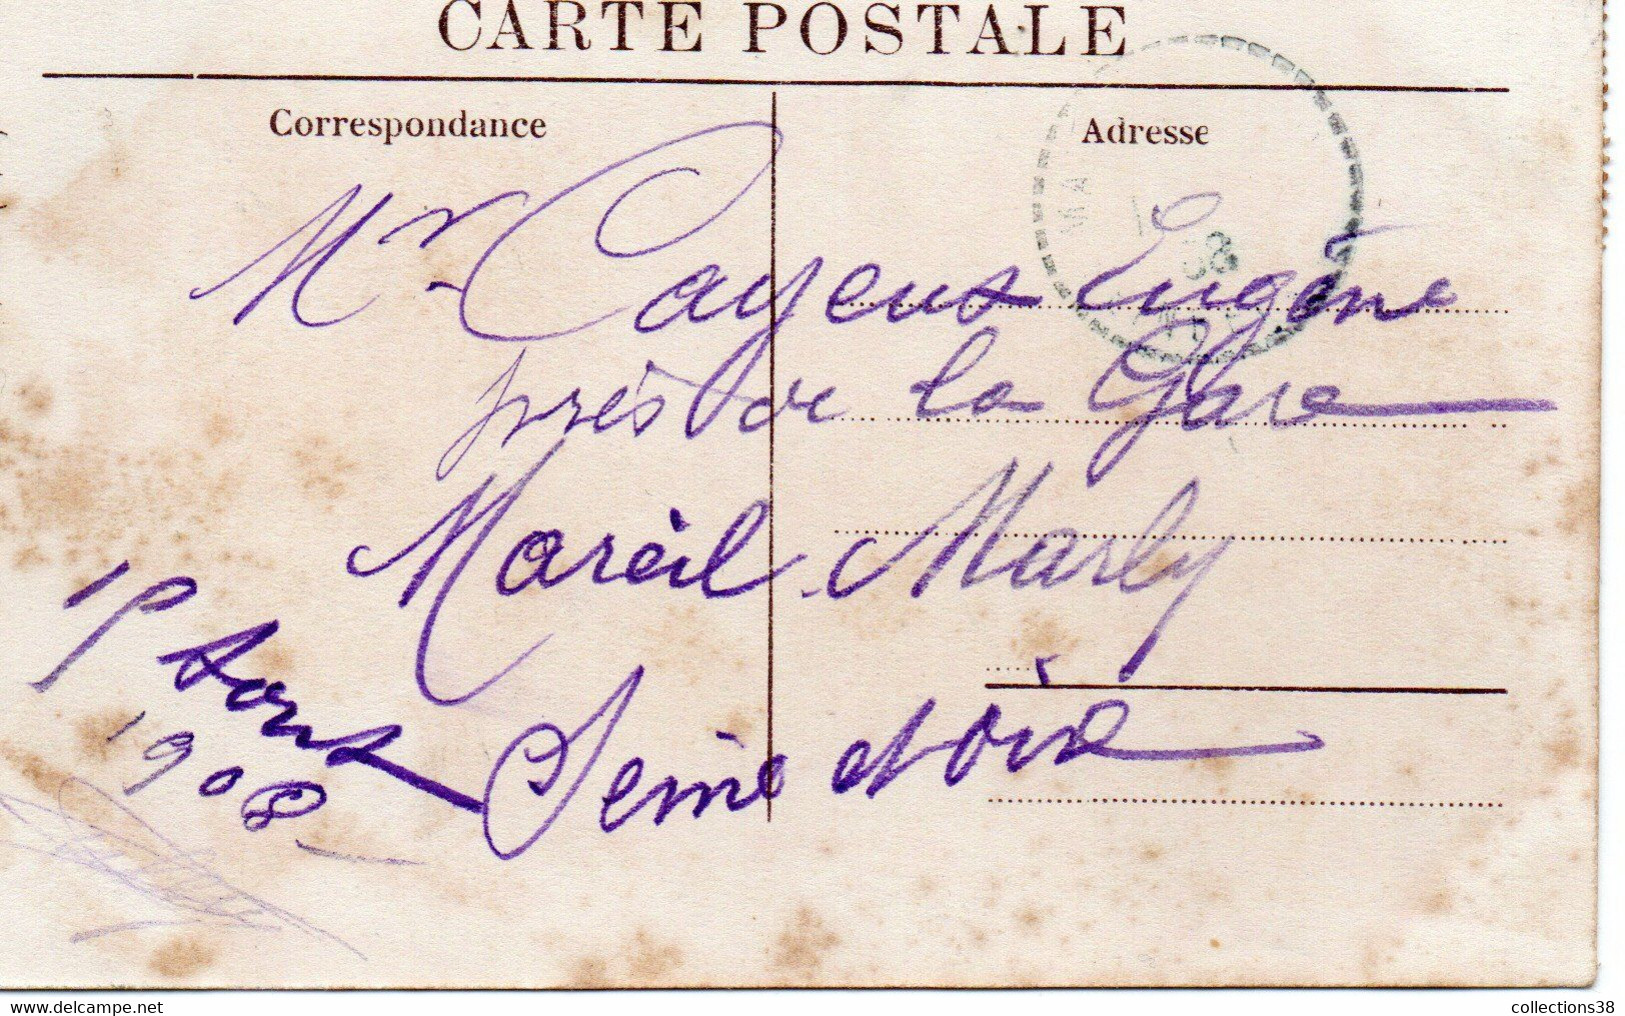 CARTE POSTALE
Correspondance
Adresse
Mr Cayeux Eugène
près de la Gare
Mareil-Marly
Seine et Oise
aout
1908
delcampe.net
collections38